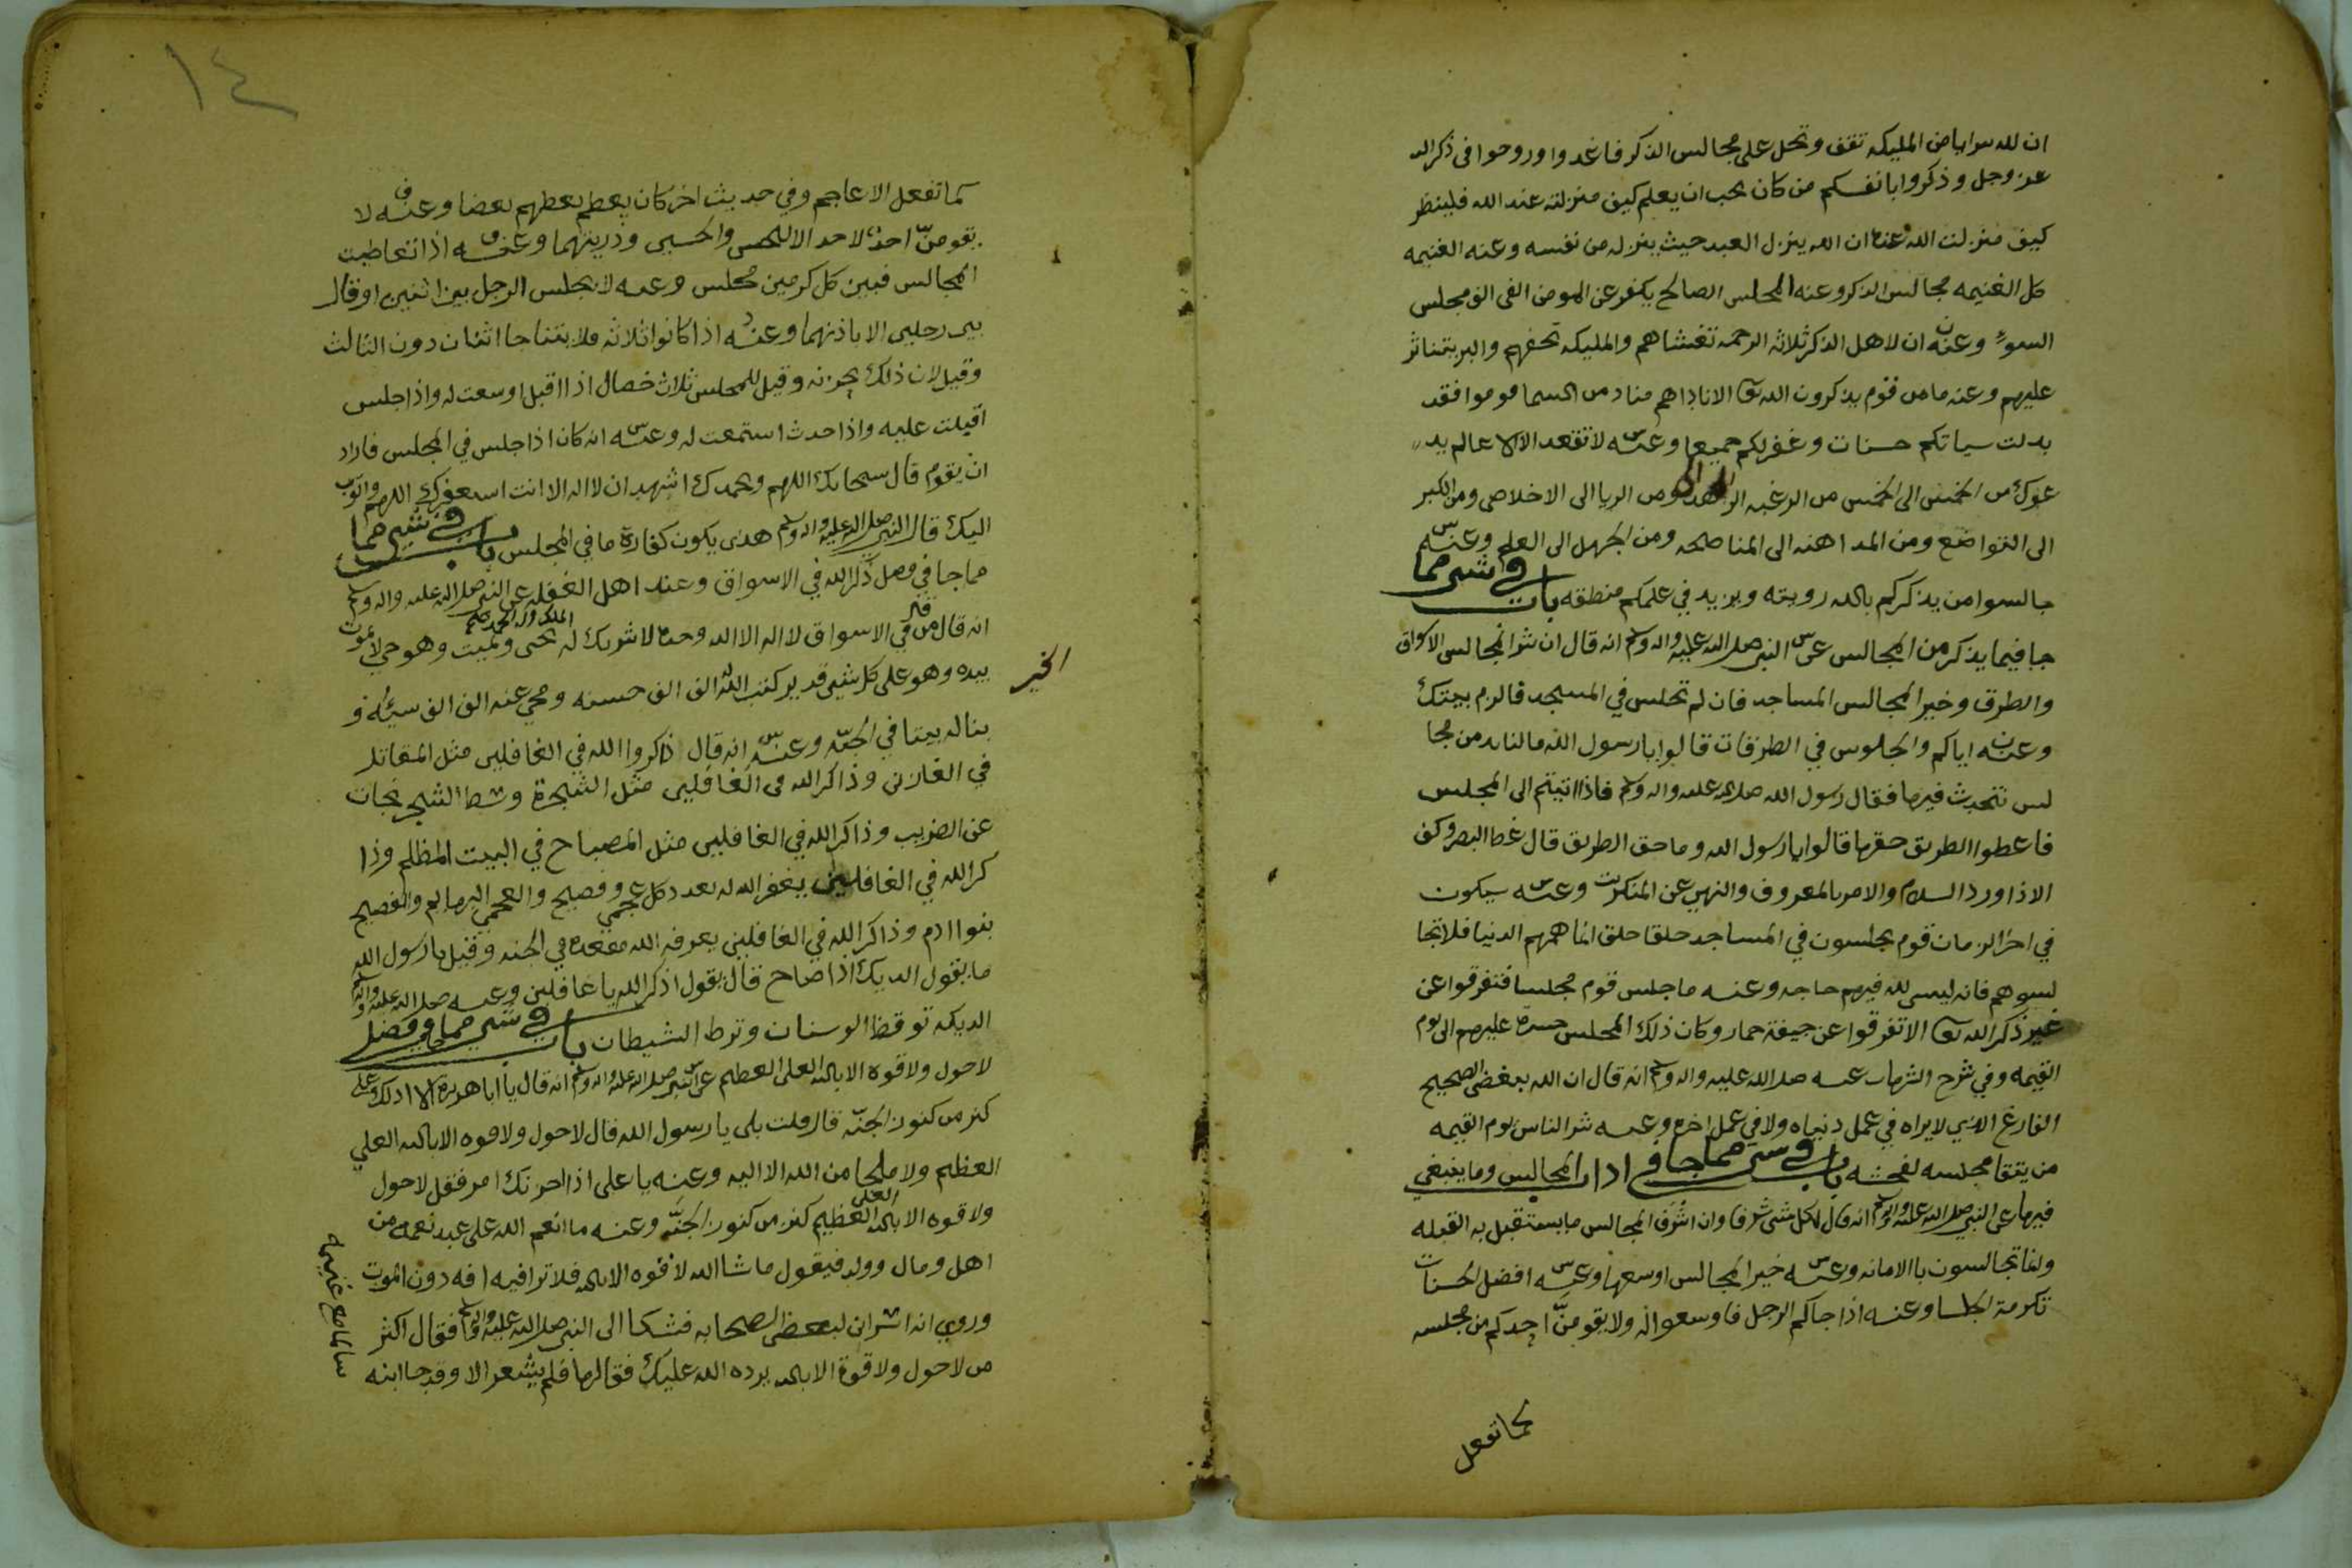 ان لله سرايا من المليكه تقف وتحل على مجالس الذكر فاغدوا وروحوا في ذكر الله
عز وجل وذكروا بانفسكم من كان يحب ان يعلم كيف منزلته عند الله فلينظر
كيف منزلت الله عنده ان الله ينزل العبد حيث ينزله من نفسه وعنه الغنيمه
كل الغنيمه مجالس الذكر وعنه المجلس الصالح يكفر عن المومن الفى الف مجلس
السوء وعنه ان لاهل الذكر ثلاثه الرحمه تغشاهم والمليكه تحفهم والبر يتناثر
عليهم وعنه ما من قوم يذكرون الله تعا الا ناداهم مناد من السما قوموا فقد
بدلت سياتكم حسنات وغفر لكم جميعا وعنه لا تقعد الا الا عالم يد
عوك من الخمس الى الخمس من الرغبه الى الزهد ومن الريا الى الاخلاص ومن الكبر
الى التواضع ومن المداهنه الى المناصحه ومن الجهل الى العلم وعنه
جالسوا من يذكركم بالله رويته ويزيد في علمكم منطقه باب في شي مما
جا فيما يذكر من المجالس عن النبي صلى الله عليه واله وسلم انه قال ان شر المجالس الاسواق
والطرق وخير المجالس المساجد فان لم تجلس في المسجد فالزم بيتك
وعنه اياكم والجلوس في الطرقات قالوا يا رسول الله ما لنا بد من مجا
لس نتحدث فيها فقال رسول الله صلى الله عليه واله وسلم فاذا اتيتم الى المجلس
فاعطوا الطريق حقها قالوا يا رسول الله وما حق الطريق قال غط البصر وكف
الاذا ورد السلام والامر بالمعروف والنهي عن المنكر وعنه سيكون
في اخر الزمان قوم يجلسون في المساجد حلقا حلقا انما همهم الدنيا فلا تجا
لسوهم فانه ليس لله فيهم حاجه وعنه ما جلس قوم مجلسا فتفرقوا عن
غير ذكر الله تعا الا تفرقوا عن جيفة حمار وكان ذلك المجلس حسرة عليهم الى يوم
القيمه وفي شرح الشهاب عنه صلى الله عليه واله وسلم انه قال ان الله يبغض الصحيح
الفارغ الذي لا يراه في عمل دنياه ولا في عمل اخره وعنه شر الناس يوم القيمه
من يتقا مجلسه لفحشه باب في شي مما جا في اداب المجالس وما ينبغي
فيها عن النبي صلى الله عليه واله وسلم انه قال لكل شي شرفا وان اشرف المجالس ما يستقبل به القبله
وانما تجالسون بالامانه وعنه خير المجالس اوسعها وعنه افضل الحسنات
تكرمة الجلسا وعنه اذا جاكم الرجل فاوسعوا له ولا يقومنّ احدكم من مجلسه
كما تفعل
١٤
كما تفعل الاعاجم وفي حديث اخر كان يعظم بعظهم بعضا وعنه لا
يقومنّ احد لاحد الا للحسن والحسين وذريتهما وعنه اذا تعاطيت
المجالس فبين كل كرمين مجلس وعنه لا يجلس الرجل بين اثنين او قال
بين رجلين الا باذنهما وعنه اذا كانوا ثلاثه فلا يتناجا اثنان دون الثالث
وقيل لان ذلك يحزنه وقيل للمجلس ثلاث خصال اذا اقبل اوسعت له واذا جلس
اقبلت عليه واذا حدث استمعت له وعنه انه كان اذا جلس في المجلس فاراد
ان يقوم قال سبحانك اللهم وبحمدك اشهد ان لا اله الا انت استغفرك اللهم واتوب
اليك قال النبي صلى الله عليه واله وسلم هذى يكون كفارة ما في المجلس باب في شي مما
مما جا في فضل ذكر الله في الاسواق وعند اهل الغفله عن النبي صلى الله عليه واله وسلم
انه قال من في الاسواق لا اله الا الله وحده لا شريك له الملك وله الحمد يحيي ويميت وهو حي لا يموت
بيده الخير وهو على كل شي قدير كتب الله الف الف حسنه ومحي عنه الف الف سيئه و
بنا له بيتا في الجنّه وعنه انه قال ذاكر والله في الغافلين مثل المقاتل
في الفارين وذاكر الله في الغافلين مثل الشجرة وسط الشجر نجات
عن الضريب وذاكر الله في الغافلين مثل المصباح في البيت المظلم وذا
كر الله في الغافلين يغفر الله له بعدد كل عجمي وفصيح والعجمي البهايم والفصيح
بنوا ادم وذاكر الله في الغافلين يعرفه الله مقعده في الجنه وقيل يا رسول الله
ما يقول الديك اذا صاح قال يقول اذكر الله يا غافلين وعنه صلى الله عليه واله
الديكه توقظ الوسنان وترط الشيطان باب في شي مما جا في فضل
لا حول ولا قوه الا بالله العلي العظيم عن النبي صلى الله عليه واله وسلم انه قال يا ابا هريرة الا ادلك على
كنز من كنوز الجنّه قال قلت بلى يا رسول الله قال لا حول ولا قوه الا بالله العلي
العظيم ولا ملجا من الله الا اليه وعنه يا على اذا احزنك امر فقل لا حول
ولا قوه الا بالله العلي العظيم كنز من كنوز الجنّه وعنه ما انعم الله على عبد نعمه من
اهل ومال وولد فيقول ما شا الله لا قوه الا بالله فلا ترا فيه افه دون الموت
وروي انه اسر ابن لبعض الصحابه فشكا الى النبي صلى الله عليه واله وسلم فقال اكثر
من لا حول ولا قوة الا بالله يرده الله عليك فقالها فلم يشعر الا وقد جا ابنه